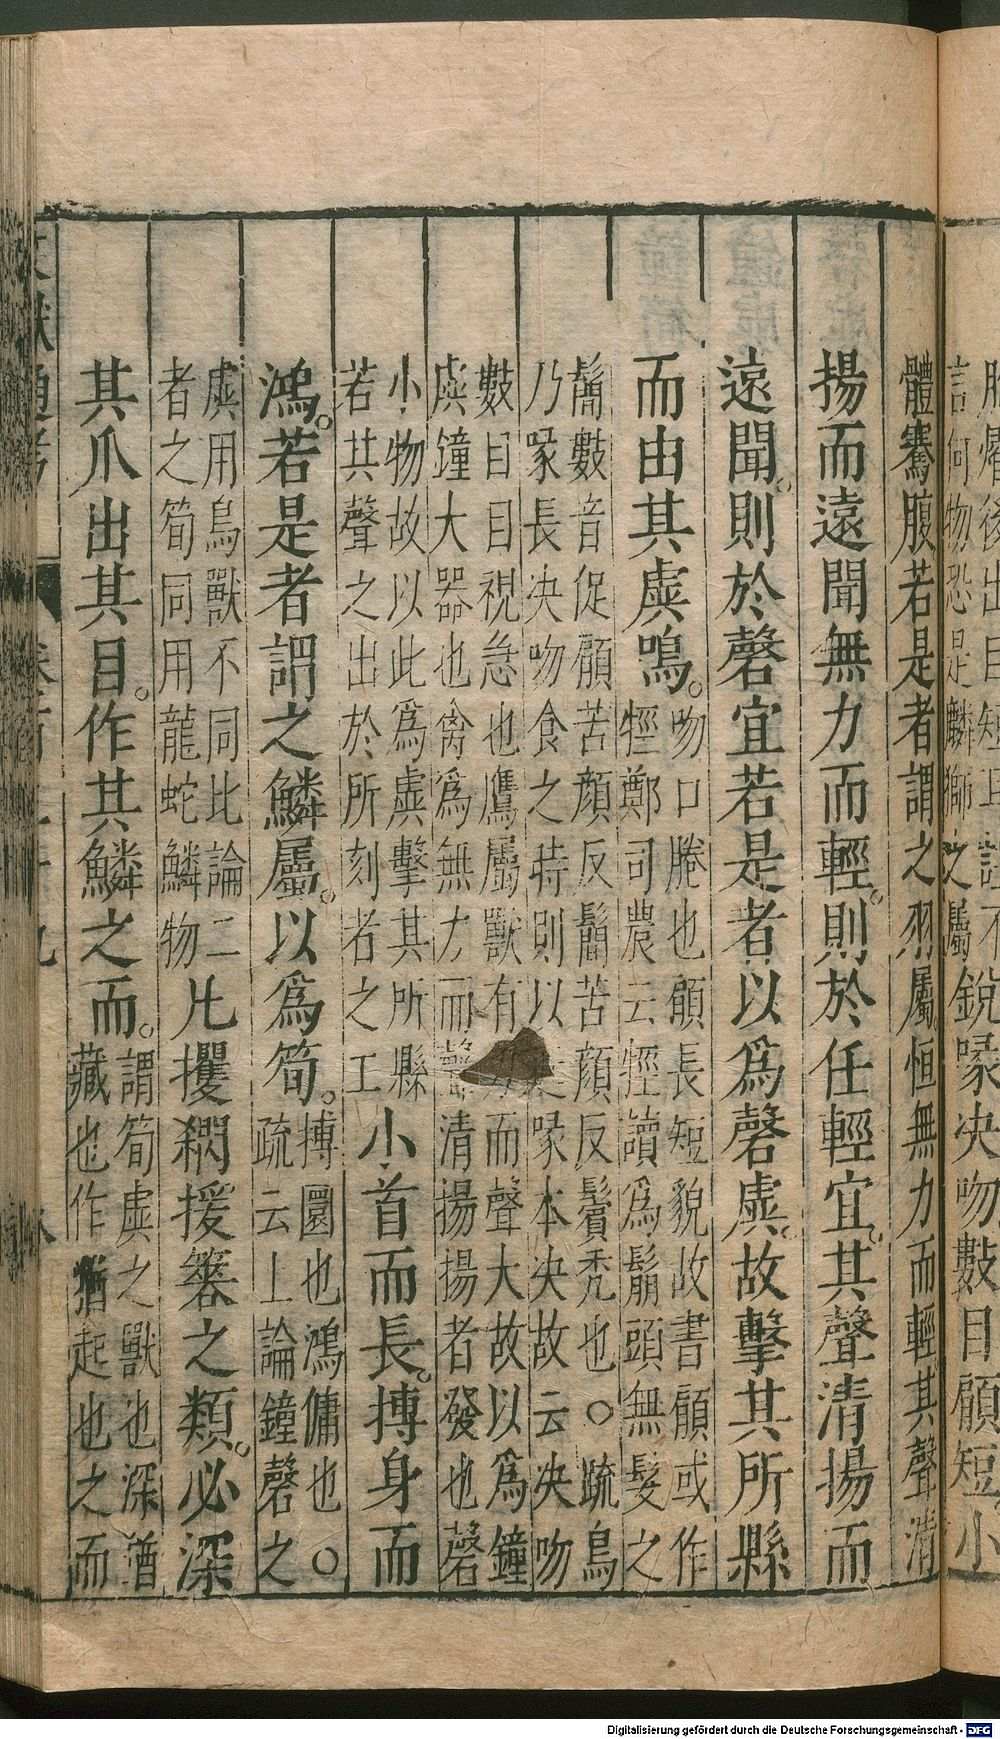 體騫腹若是者謂之羽屬。恒無力而輕其聲清
揚而遠聞無力而輕。則於任輕宜。其聲清揚而
遠聞。則於磬宜若是者以爲磬虡。故擊其所縣
而由其虡鳴。吻口腃也顧長短貌故書顧或作
牼鄭司農云牼讀爲鬜頭無髮之
鬜數音促顧苦顔反鬜苦顔反鬢禿也○疏鳥
乃喙長决吻食之時則以喙本决故云决吻
數目目視急也鷹屬獸有力而聲大故以爲鐘
虡鐘大器也禽爲無力而聲清揚揚者發也磬
小物故以此爲虡擊其所縣
若其聲之出於所刻者之工
小首而長。摶身而
鴻。若是者謂之鱗屬。以爲筍。摶圜也鴻傭也○
疏云上論鐘磬之
虡用鳥獸不同此論二
者之筍同用龍蛇鱗物
凡攫閷援簭之類。必深
其爪出其目。作其鱗之而。謂筍虡之獸也深猶
藏也作猶起也之而
言何物恐是麟獅之屬銳喙决吻數目顧短小
Digitalisierung gefördert durch die Deutsche Forschungsgemeinschaft - DFG